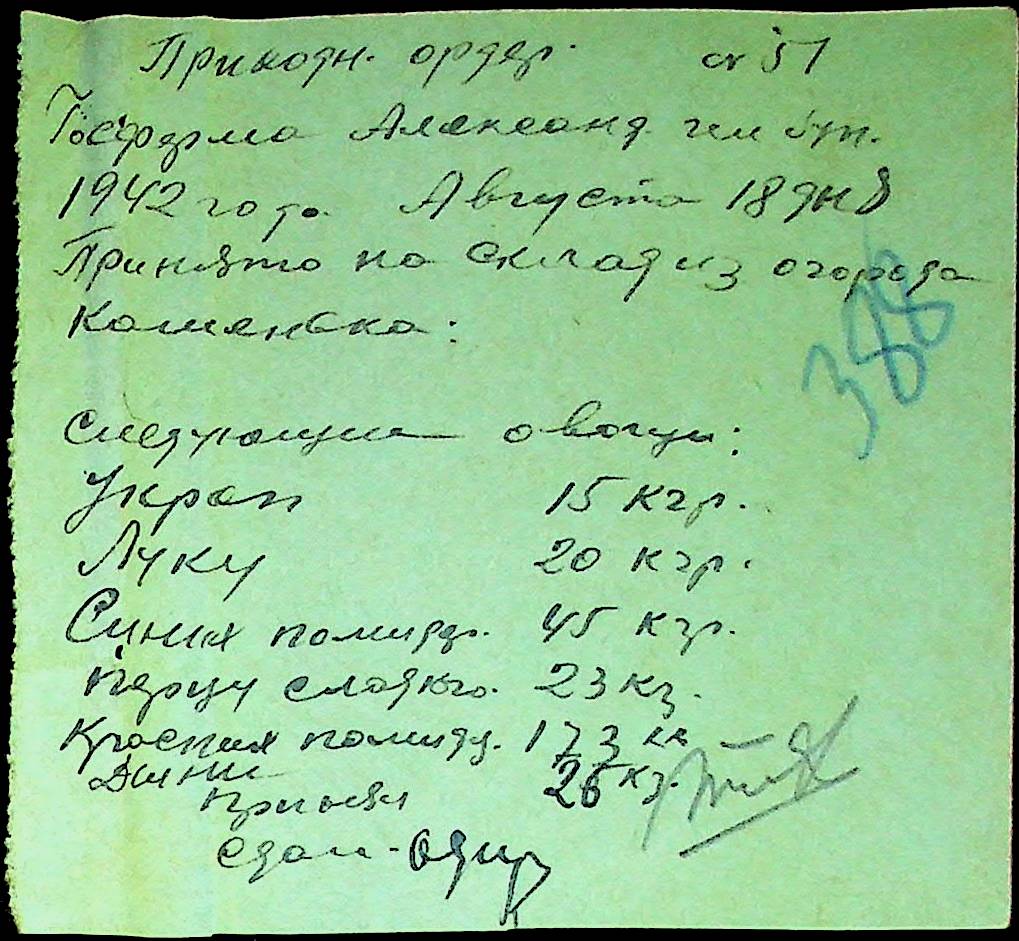 Приходн. ордер. № 51
Госферма Александ
1942 года Августа 18 дня
Принято на склад из огорода
Каменска:
388
Следующие овощи:
Укроп 15 кгр.
Луку 20 кгр.
Синих помидр. 45 кгр.
Перцу сладкого. 23 кг.
Красних помидр. 173 кг
Дини 26 кг.
Принял
Сдал